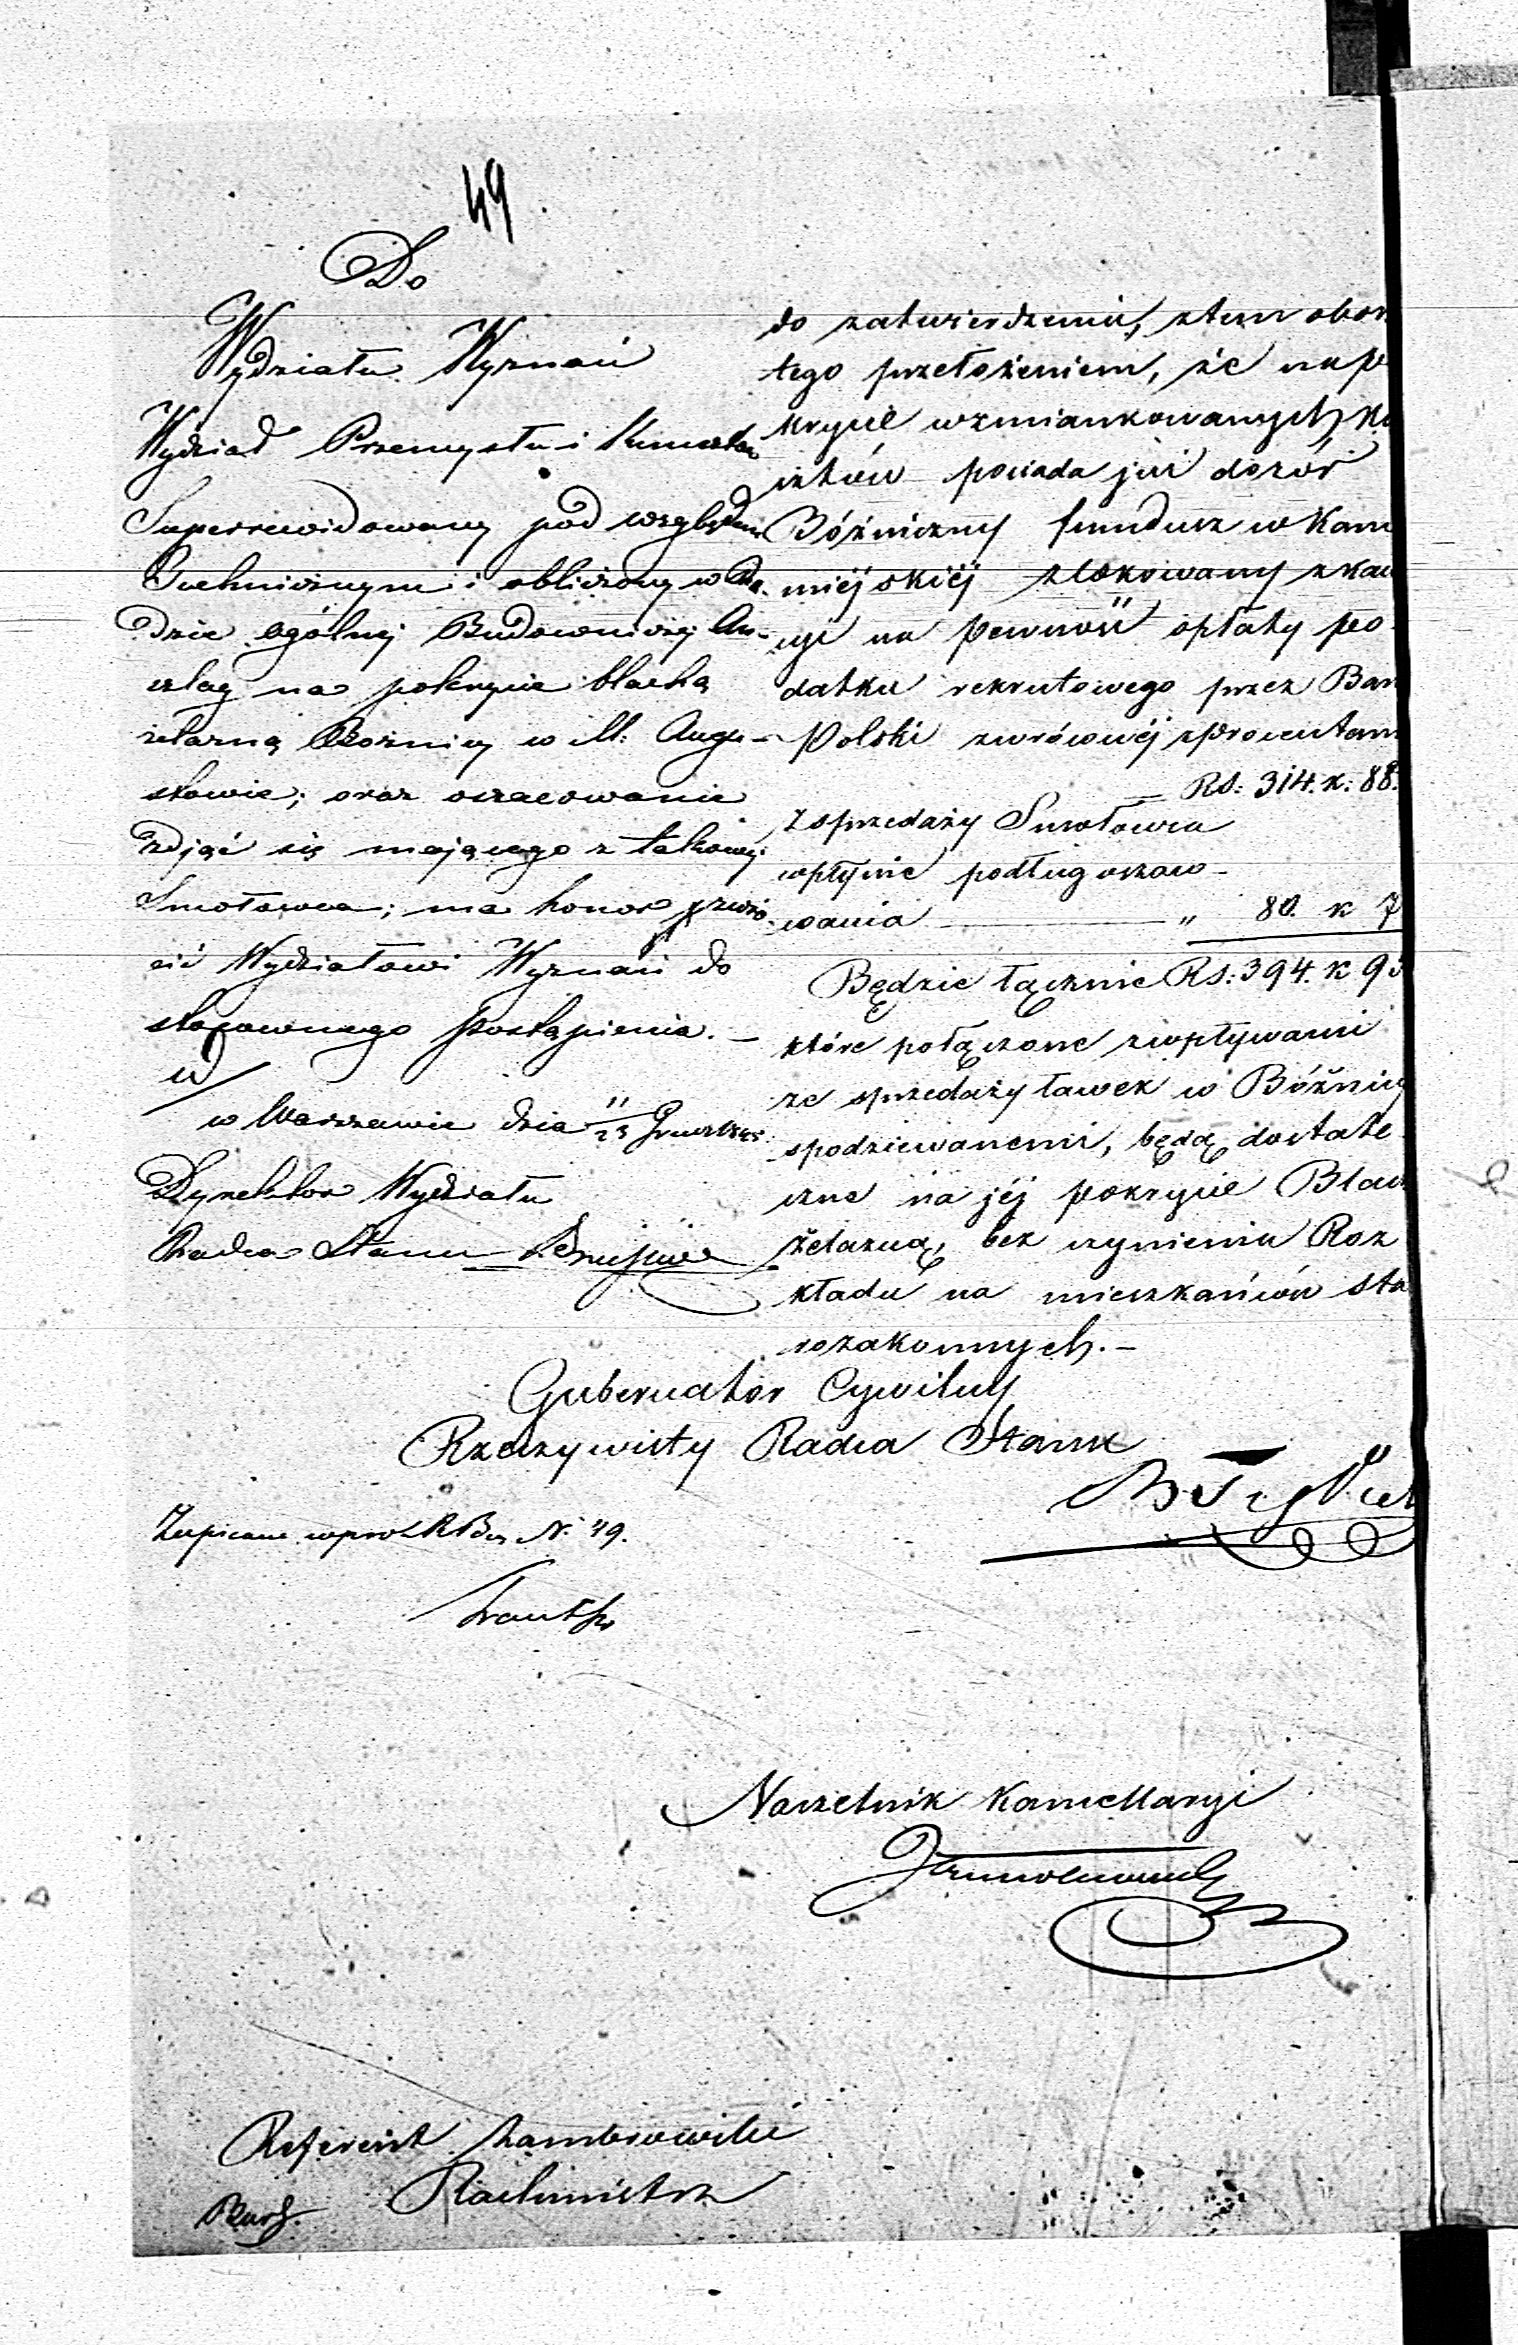 49
Do
Wydziału Wyznań
Wydział Przemysłu i Kunsztów
Superrewidowany pod względem
Technicznym i obliczony w Ra-
dzie ogólnej Budowniczej An-
szlag na pokrycie blachą
żelazną Bożnicy w M. Augu-
stowie; oraz oszacowanie
zdjąć się mającego z takowej
Smołowca; ma honor zwró-
cić Wydziałowi Wyznań do
stosownego postąpienia. –
w Warszawie dnia 11/23 Grudnia
Dyrektor Wydziału
Radca Stanu
do zatwierdzenia, z tem obok
tego przełożeniem, że na po
krycie wzmiankowanych ko
sztów posiada już dozór
Bóżniczny fundusz w Kassie
miejskiéj zlokowany z kau
cyi na pewność opłaty po-
datku rekrutowego przez Bank
Polski zwróconéj z procentami
Rs: 314. k: 88.
Z sprzedaży Smołowca
wpłynie podług oszaco-
wania " 80. k 7
Będzie łącznie Rs: 394. k 95
które połączone z wpływami
ze sprzedaży ławek w Bóżnicy
spodziewanemi, będą dostate
czne na jéj pokrycie Blachą
żelazną, bez czynienia Roz
kładu na mieszkańców sta
rozakonnych. –
Gubernator Cywilny
Rzeczywisty Radca Stanu
Zapisane w prot. R. B. N. 49.
Naczelnik Kancellaryi
Referent Zambrowicki
Rachmistrz